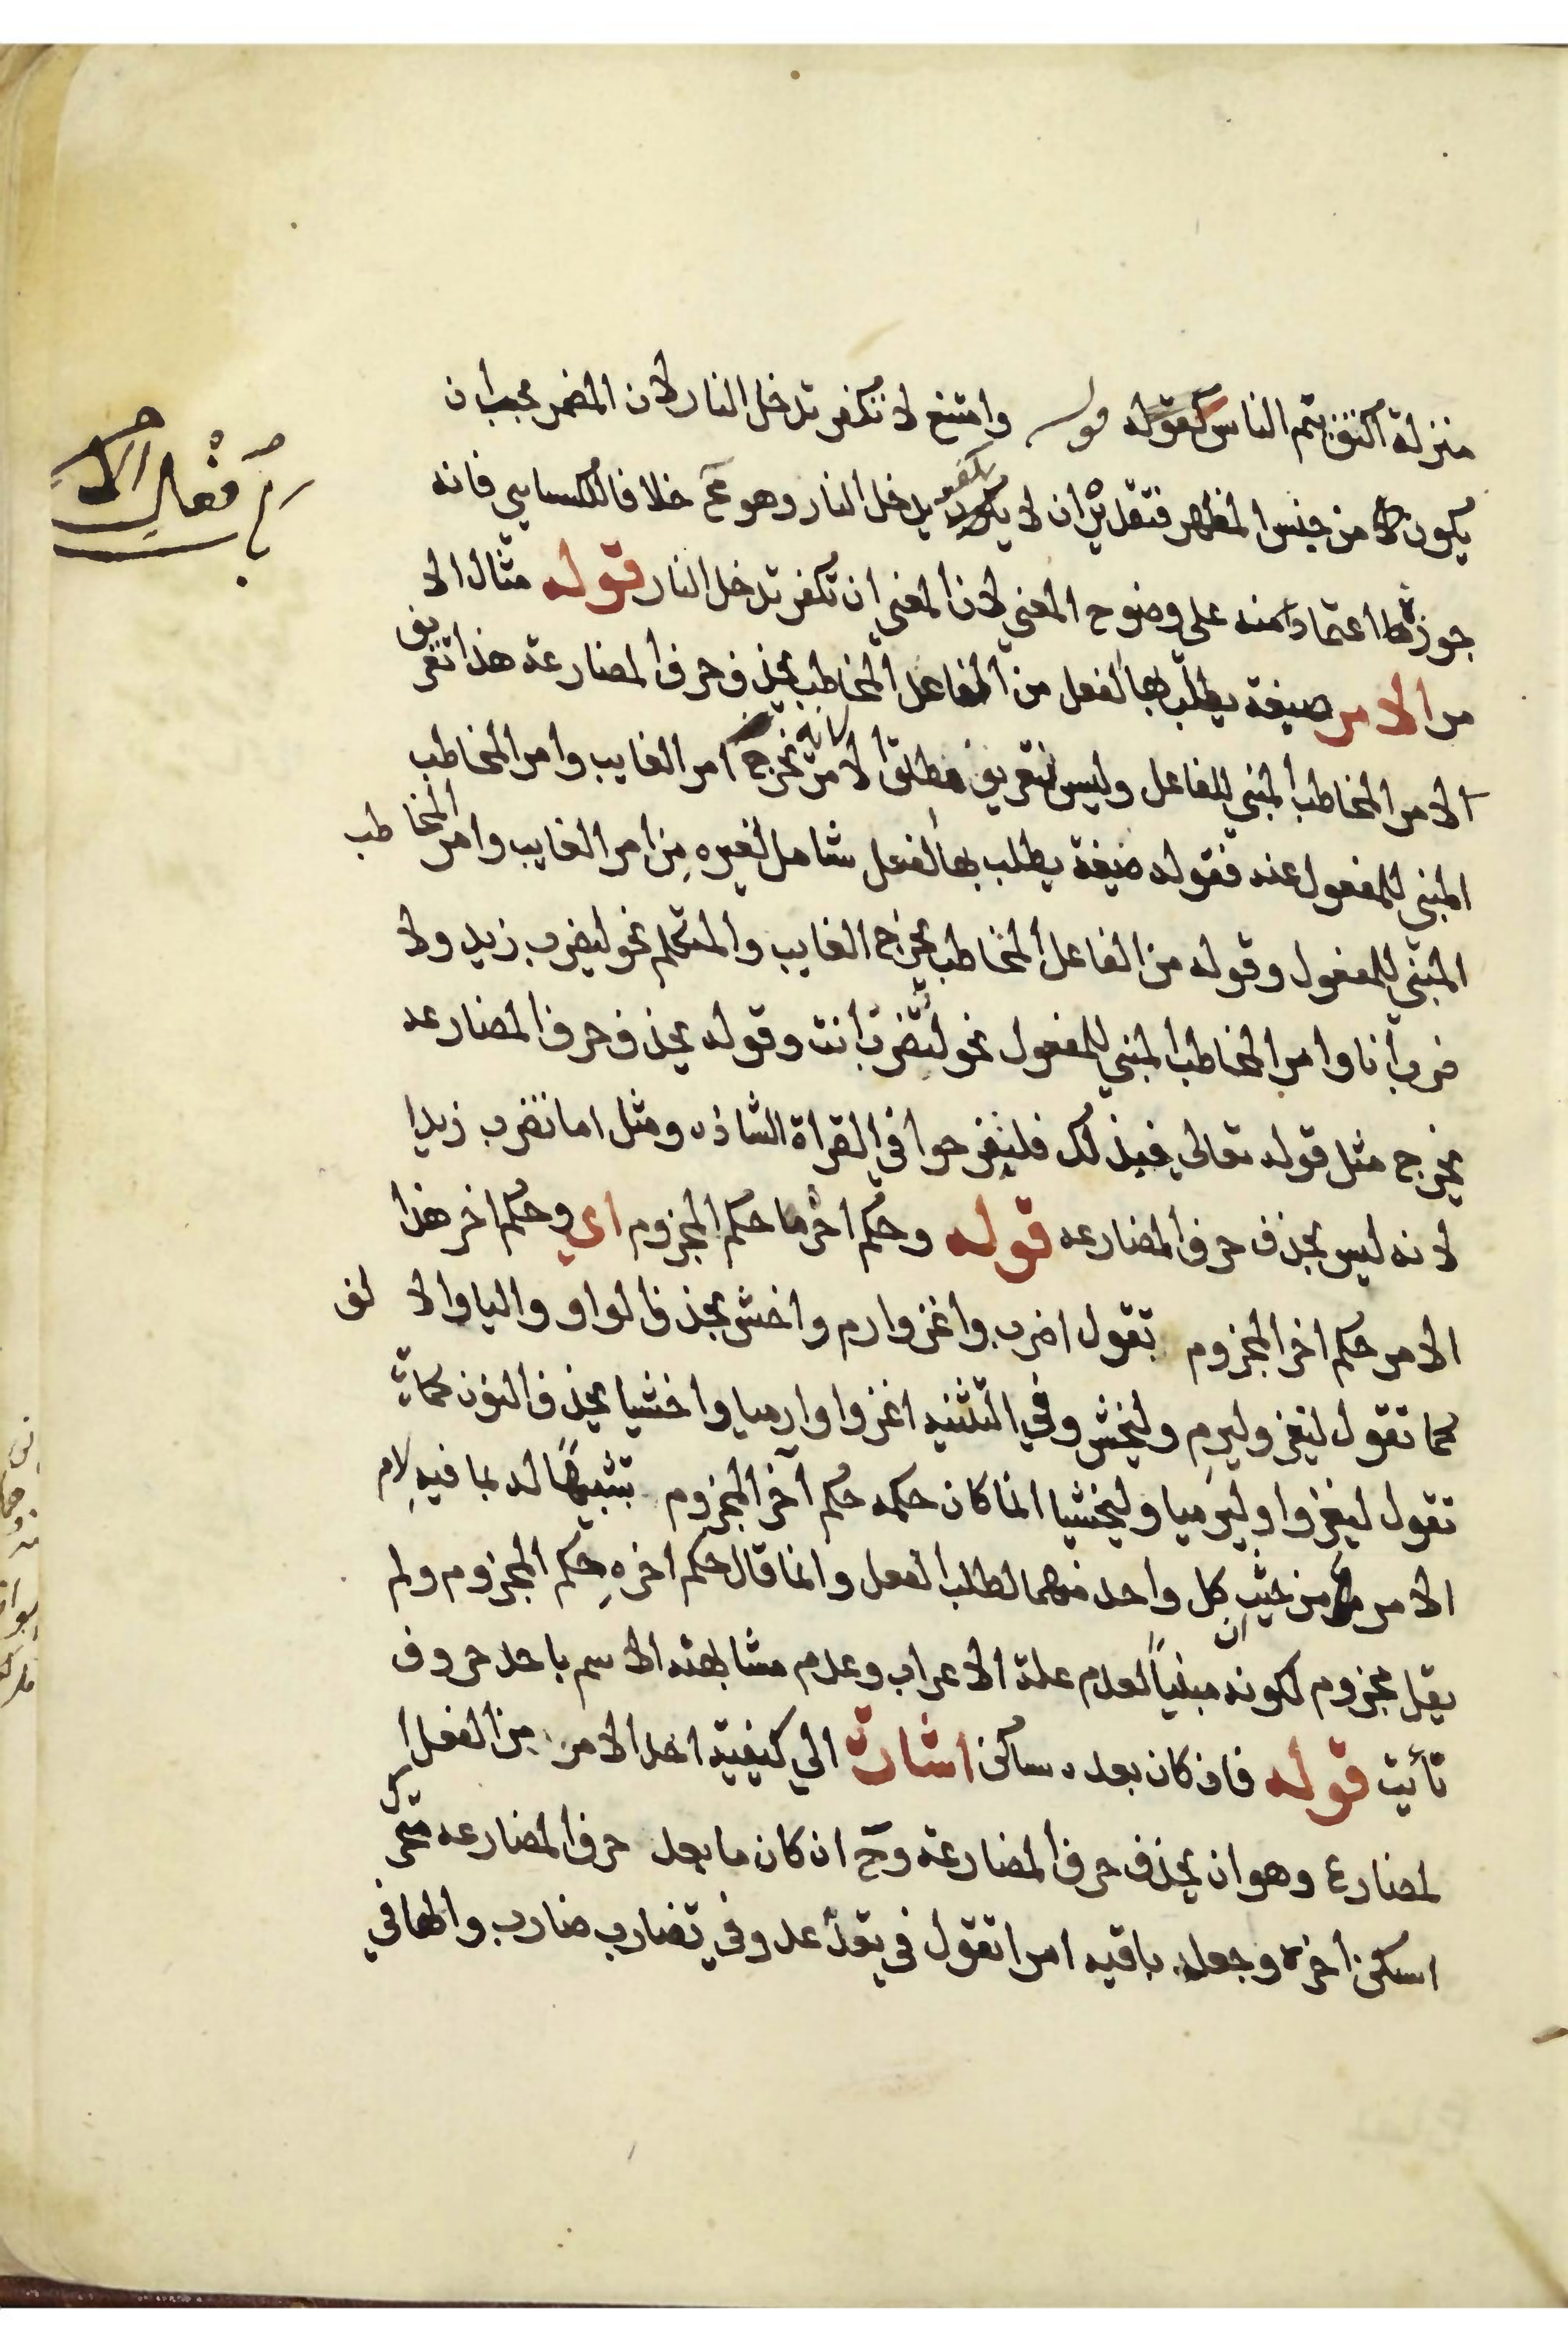 منزلة اكفف ينم الناس كقوله قوله وامتنع لا تكفر تدخل النار لان المضمر يجب ان
يكون من جنس المظهر فتقديره ان لا يكفر يدخل النار وهو مح خلافا للكسايي فانه
جوزها اعتمادا منه علي وضوح المعني لان المعني ان تكفر تدخل النار قوله مثال الا
مر الامر صيغة يطلب بها الفعل من الفاعل المخاطب بحذف حرف المضارعة هذا تعريف
الامر المخاطب المبني للفاعل وليس تعريف مطلق الامر لانه يخرج امر الغايب وامر المخاطب
المبني للمفعول عنه فقوله صيغة يطلب بها الفعل شامل لغيره مِن امر الغايب وامر المخاطب
المبني للمفعول وقوله من الفاعل المخاطب يخرج الغايب والمتكلم نحو ليضرب زيد ولا
ضرب أنا وامر المخاطب المبني للمفعول نحو لتُضرب أنت وقوله بحذف حرف المضارعه
يخرج مثل قوله تعالي فبذلك فلتفرحوا في القراة الشاذه ومثل اما تضرب زيدا
لانه ليس بحذف حرف المضارعه قوله وحكم اخرها حكم المجزوم اي وحكم اخر هذا
الامر حكم اخر المجزوم تقول اضرب واغز وارم واخش بحذف الواو واليا والالف
كما تقول ليغز وليرمِ وليخش وفي التثنيه اغزوا وارميا واخشيا بحذف النون كما
تقول ليغزوا وليرميا وليخشيا انما كان حكمه حكم آخر المجزوم تشبيهًا له بما فيه لام
الامر من حيث ان كل واحد منهما لطلب الفعل وانما قال حكم اخره حكم المجزوم ولم
يقل مجزوم لكونه مبنياً لعدم علة الاعراب وعدم مشابهته الاسم باحد حروف
تأيت قوله فان كان بعده ساكن اشارة الي كيفية اخذ الامر مِن الفعل ا
لمضارع وهو ان يحذف حرف المضارعة وح ان كان ما بعد حرف المضارعه متحرك
اسكن اخره وجعل باقيه امرا تقول في يعد عد وفي تضارب ضارب والها في